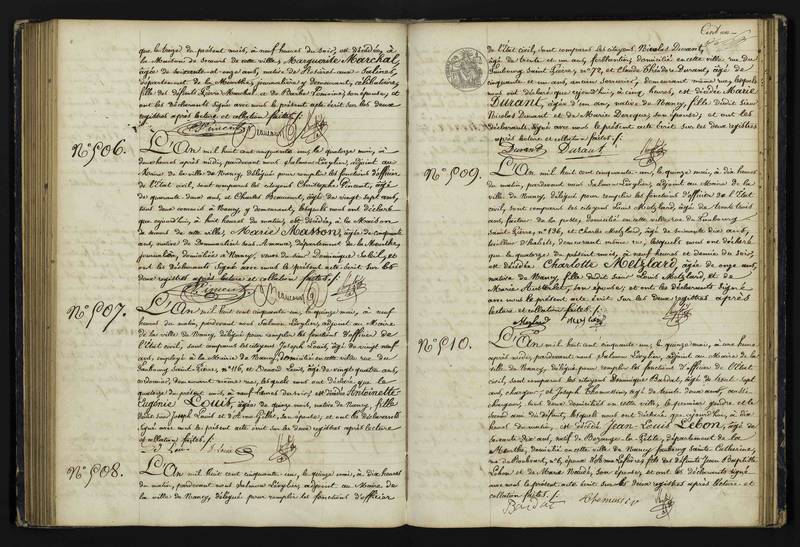 que le treize du présent mois, à neuf heures du soir, est décédée, à
la Maison de secours de cette ville, Marguerite Marchal,
âgée de soixante et onze ans, native de Rosières-aux-Salines,
département de la Meurthe, journalière y demeurant, célibataire,
fille des défunts Pierre Marchal et de Barbe
et ont les déclarants signé avec nous le présent acte écrit sur les deux
registres après lecture et collation faites./.
Nº 506.
L'An mil huit cent cinquante-un, le quatorze mai, à
deux heures après midi, pardevant nous Salmon Lévylier, adjoint au
Maire de la ville de Nancy, délégué pour remplir les fonctions d'officier
de l'Etat civil, sont comparus les citoyens Christophe Piment, âgé
de quarante deux ans, et Charles Bemmont, âgé de vingt sept ans,
tous deux à Nancy, y demeurant, lesquels nous ont déclaré
que cejourd'hui, à huit heures du matin, est décédée, à la Maison
de secours de cette ville, Marie Masson, âgée de cinquante
ans, native de Dommartin sous Amance, département de la Meurthe,
journalière, domiciliée à Nancy, veuve de Dominique
et ont les déclarants signé avec nous le présent acte écrit sur les
deux registres après lecture et collation faites./.
Nº 507.
L'An mil huit cent cinquante-un, le quinze mai, à neuf
heures du matin, pardevant nous Salmon Lévylier, adjoint au Maire
de la ville de Nancy, délégué pour remplir les fonctions d'officier de
l'Etat civil, sont comparus les citoyens Joseph Louis, âgé de vingt neuf
ans, employé à la Mairie de Nancy, domicilié en cette ville rue du
faubourg Saint-Pierre, nº 116, et Edouard Louis, âgé de vingt quatre ans,
cordonnier, demeurant même rue, lesquels nous ont déclaré que le
quatorze du présent mois, à neuf heures du soir, est décédée Antoinette
Eugénie Louis, âgée de quinze mois, native de Nancy, fille
dudit sieur Joseph Louis et d'Anne Gillet, son épouse, et ont les déclarants
signé avec nous le présent acte écrit sur les deux registres après lecture
et collation faites./.
Nº 508.
L'An mil huit cent cinquante-un, le quinze mai, à dix heures
du matin, pardevant nous Salmon Lévylier, adjoint au Maire de
la ville de Nancy, délégué pour remplir les fonctions d'officier
de l'Etat civil, sont comparus les citoyens Nicolas Durant,
âgé de trente et un ans, domicilié en cette ville rue du
faubourg Saint-Pierre, nº 72, et Claude Théodore Durant, âgé de
cinquante et un ans, ancien serrurier, demeurant même rue, lesquels
nous ont déclaré que cejourd'hui, à cinq heures, est décédée Marie
Durant, âgée d'un an, native de Nancy, fille dudit sieur
Nicolas Durant et de Marie son épouse, et ont les
déclarants signé avec nous le présent acte écrit sur les deux registres
après lecture et collation faites./.
Durant Durant
Nº 509.
L'An mil huit cent cinquante-un, le quinze mai, à dix heures
du matin, pardevant nous Salmon Lévylier, adjoint au Maire de la
ville de Nancy, délégué pour remplir les fonctions d'officier de l'Etat
civil, sont comparus les citoyens Louis Metzlard, âgé de trente huit
ans, facteur de la poste, domicilié en cette ville rue du faubourg
Saint-Pierre, nº 136, et Charles Metzlard, âgé de soixante dix ans,
tailleur d'habits, demeurant même rue, lesquels nous ont déclaré
que le quatorze du présent mois, à neuf heures et demie du soir,
est décédée Charlotte Metzlard, âgée de onze ans,
native de Nancy, fille dudit sieur Louis Metzlard, et de
Marie son épouse, et ont les déclarants signé
avec nous le présent acte écrit sur les deux registres après
lecture et collation faites./.
Nº 510.
L'An mil huit cent cinquante-un, le quinze mai, à une heure
après midi, pardevant nous Salmon Lévylier, adjoint au Maire de la
ville de Nancy, délégué pour remplir les fonctions d'officier de l'Etat
civil, sont comparus les citoyens Dominique Bardat, âgé de trente sept
ans, et Joseph Thomassin, âgé de trente deux ans,
tous deux domiciliés en cette ville, le premier gendre et le
second ami du défunt, lesquels nous ont déclaré que cejourd'hui, à dix
heures du matin, est décédé Jean Louis Lebon, âgé de
soixante dix ans, natif de Bezange la Petite, département de la
Meurthe, domicilié en cette ville de Nancy faubourg Sainte Catherine,
nº 6, époux fils des défunts Jean Baptiste
Lebon et de Marie son épouse, et ont les déclarants signé
avec nous le présent acte écrit sur les deux registres après lecture et
collation faites./.
Bardat Thomassin